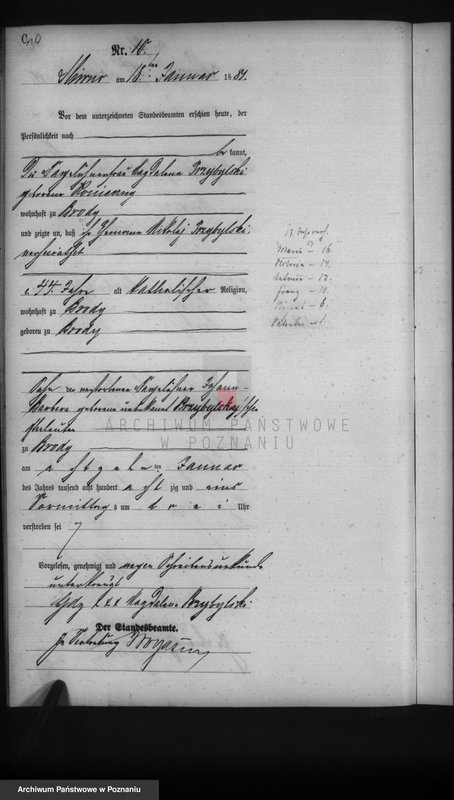 C.
Nr. 10.
am 18ten Januar 1881.
Vor dem unterzeichneten Standesbeamten erschien heute, der
Persönlichkeit nach
be kannt,
Die Tagelöhnerfrau Magdalena Przybylski
geborene
wohnhaft zu Brody
und zeigte an, daß ihr Ehemann Nikolaj Przybylski
verheirathet
44 Jahre alt katholischer Religion,
wohnhaft zu Brody
geboren zu Brody
Sohn der verstorbenen Tagelöhner Johann
Barbara geborene unbekannt Przybylski'schen
Eheleute
zu Brody
am achtzehnten Januar
des Jahres tausend acht hundert acht zig und eins
Vormittags um drei Uhr
verstorben sei
Vorgelesen, genehmigt und wegen Schreibensunkunde
unterkreuzt
xxx Magdalena Przybylski
Der Standesbeamte.
In Vertretung
Maria 16.
Viktoria – 14.
– 12.
Franz – 10.
– 6.
ARCHIWUM PAŃSTWOWE
W POZNANIU
Archiwum Państwowe w Poznaniu